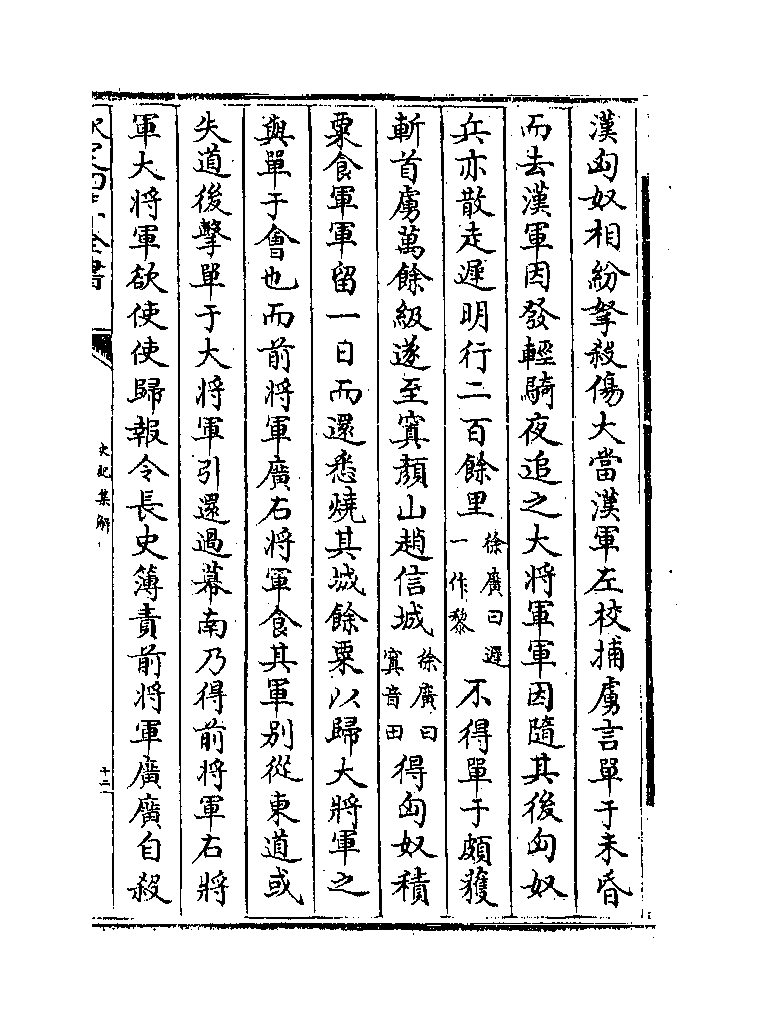 漢匈奴相紛挐殺傷大當漢軍左校捕虜言單于未昏
而去漢軍因發輕騎夜追之大將軍軍因隨其後匈奴
兵亦散走遲明行二百餘里徐廣曰遲一作黎不得單于頗獲
斬首虜萬餘級遂至窴顏山趙信城徐廣曰窴音田得匈奴積
粟食軍軍留一日而還悉燒其城餘粟以歸大將軍之
與單于會也而前將軍廣右將軍食其軍別從東道或
失道後擊單于大將軍引還過幕南乃得前將軍右將
軍大將軍欲使使歸報令長史簿責前將軍廣廣自殺
欽定四庫全書
史記集解
十二